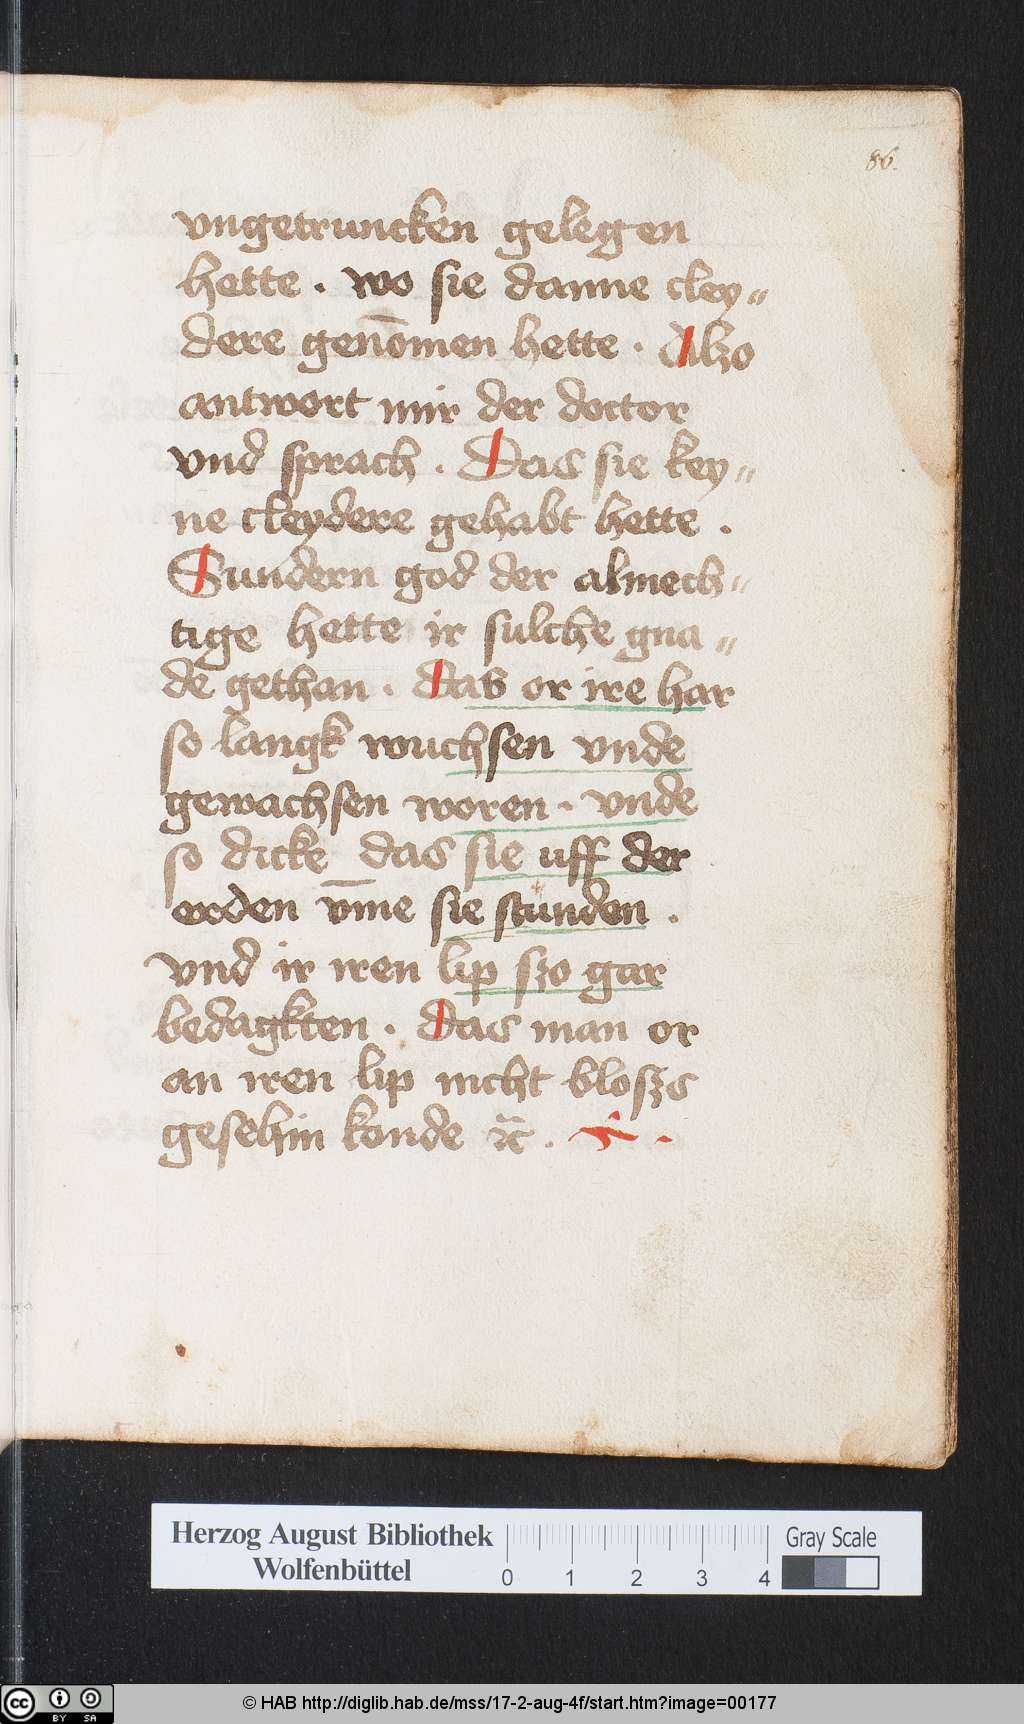 86.
vngetruncken gelegen
hette . wo sie danne cley„
dere genōmen hette . Alzo
antwort mir der doctor
vnd sprach . Das sie key„
ne cleydere gehabt hette .
Sundern god der almech„
tige hette ir sulche gna„
de gethan . das or ire har
so langk wuchsen vnde
gewachsen woren . vnde
so dicke das sie uff der
erden v̄me sie stunden .
vnd ir iren lip szo gar
bedagkten . das man or
an iren lip nicht bloszs
gesehin konde ꝛc̃ .
Herzog August Bibliothek
Wolfenbüttel
0 1 2 3 4
Gray Scale
cc BY SA
© HAB http://diglib.hab.de/mss/17-2-aug-4f/start.htm?image=00177